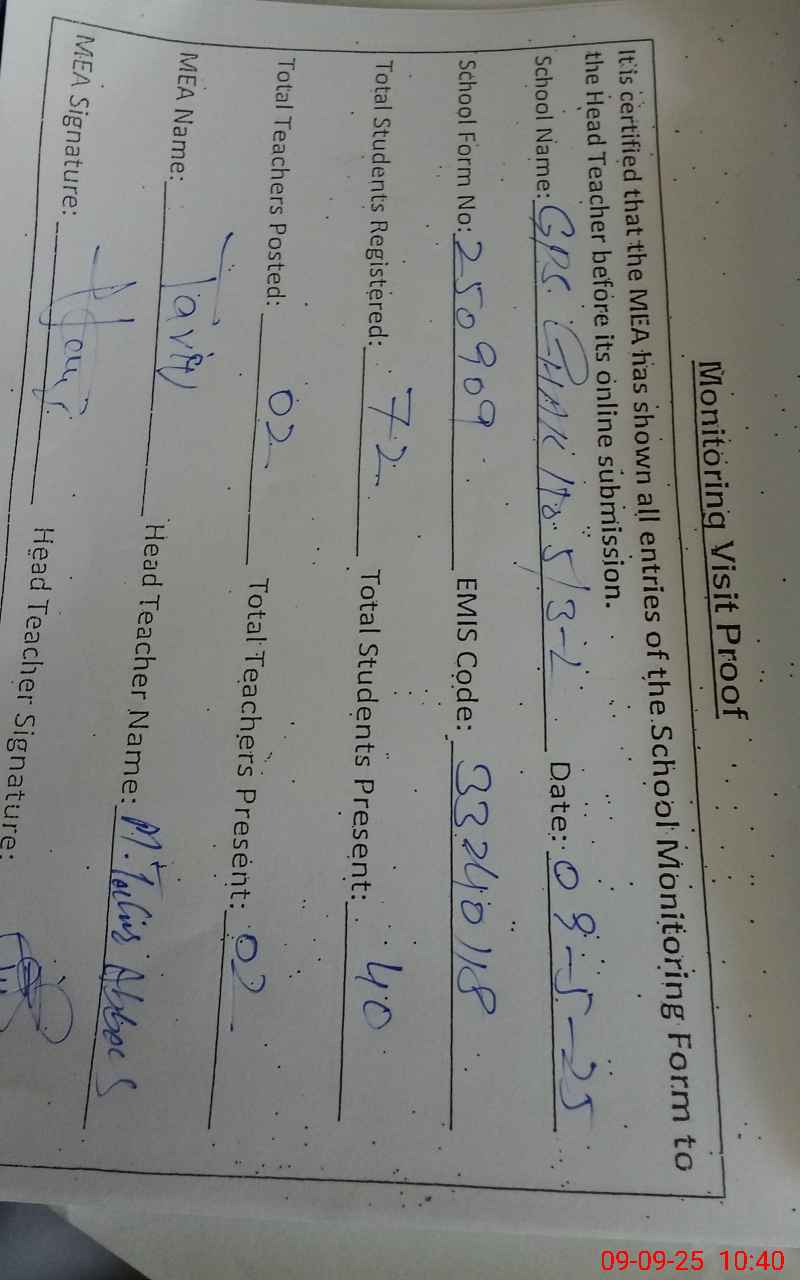 Monitoring Visit Proof
It is certified that the MEA has shown all entries of the School Monitoring Form to
the Head Teacher before its online submission.
School Name: GPS CHAK No. 5/3-L Date: 09-5-25
School Form No: 250909 EMIS Code: 33240118
Total Students Registered: 72 Total Students Present: 40
Total Teachers Posted: 02 Total Teachers Present: 02
MEA Name: Tariq Head Teacher Name: M. Abbas
MEA Signature: Head Teacher Signature:
09-09-25 10:40